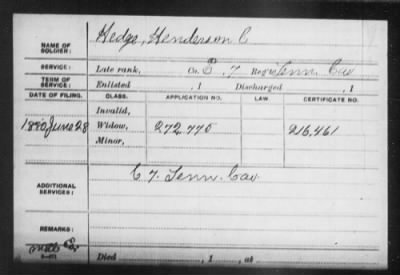 NAME OF SOLDIER: Hedge, Henderson C
SERVICE: Late rank, Co. C 7 Reg't Tenn. Cav
TERM OF SERVICE: Enlisted , 1 Discharged , 1
DATE OF FILING. CLASS. APPLICATION NO. LAW CERTIFICATE NO.
Invalid,
1880 June 28 Widow, 272.770 216,461
Minor,
ADDITIONAL SERVICES: C 7. Tenn. Cav.
REMARKS:
Died , 1 , at